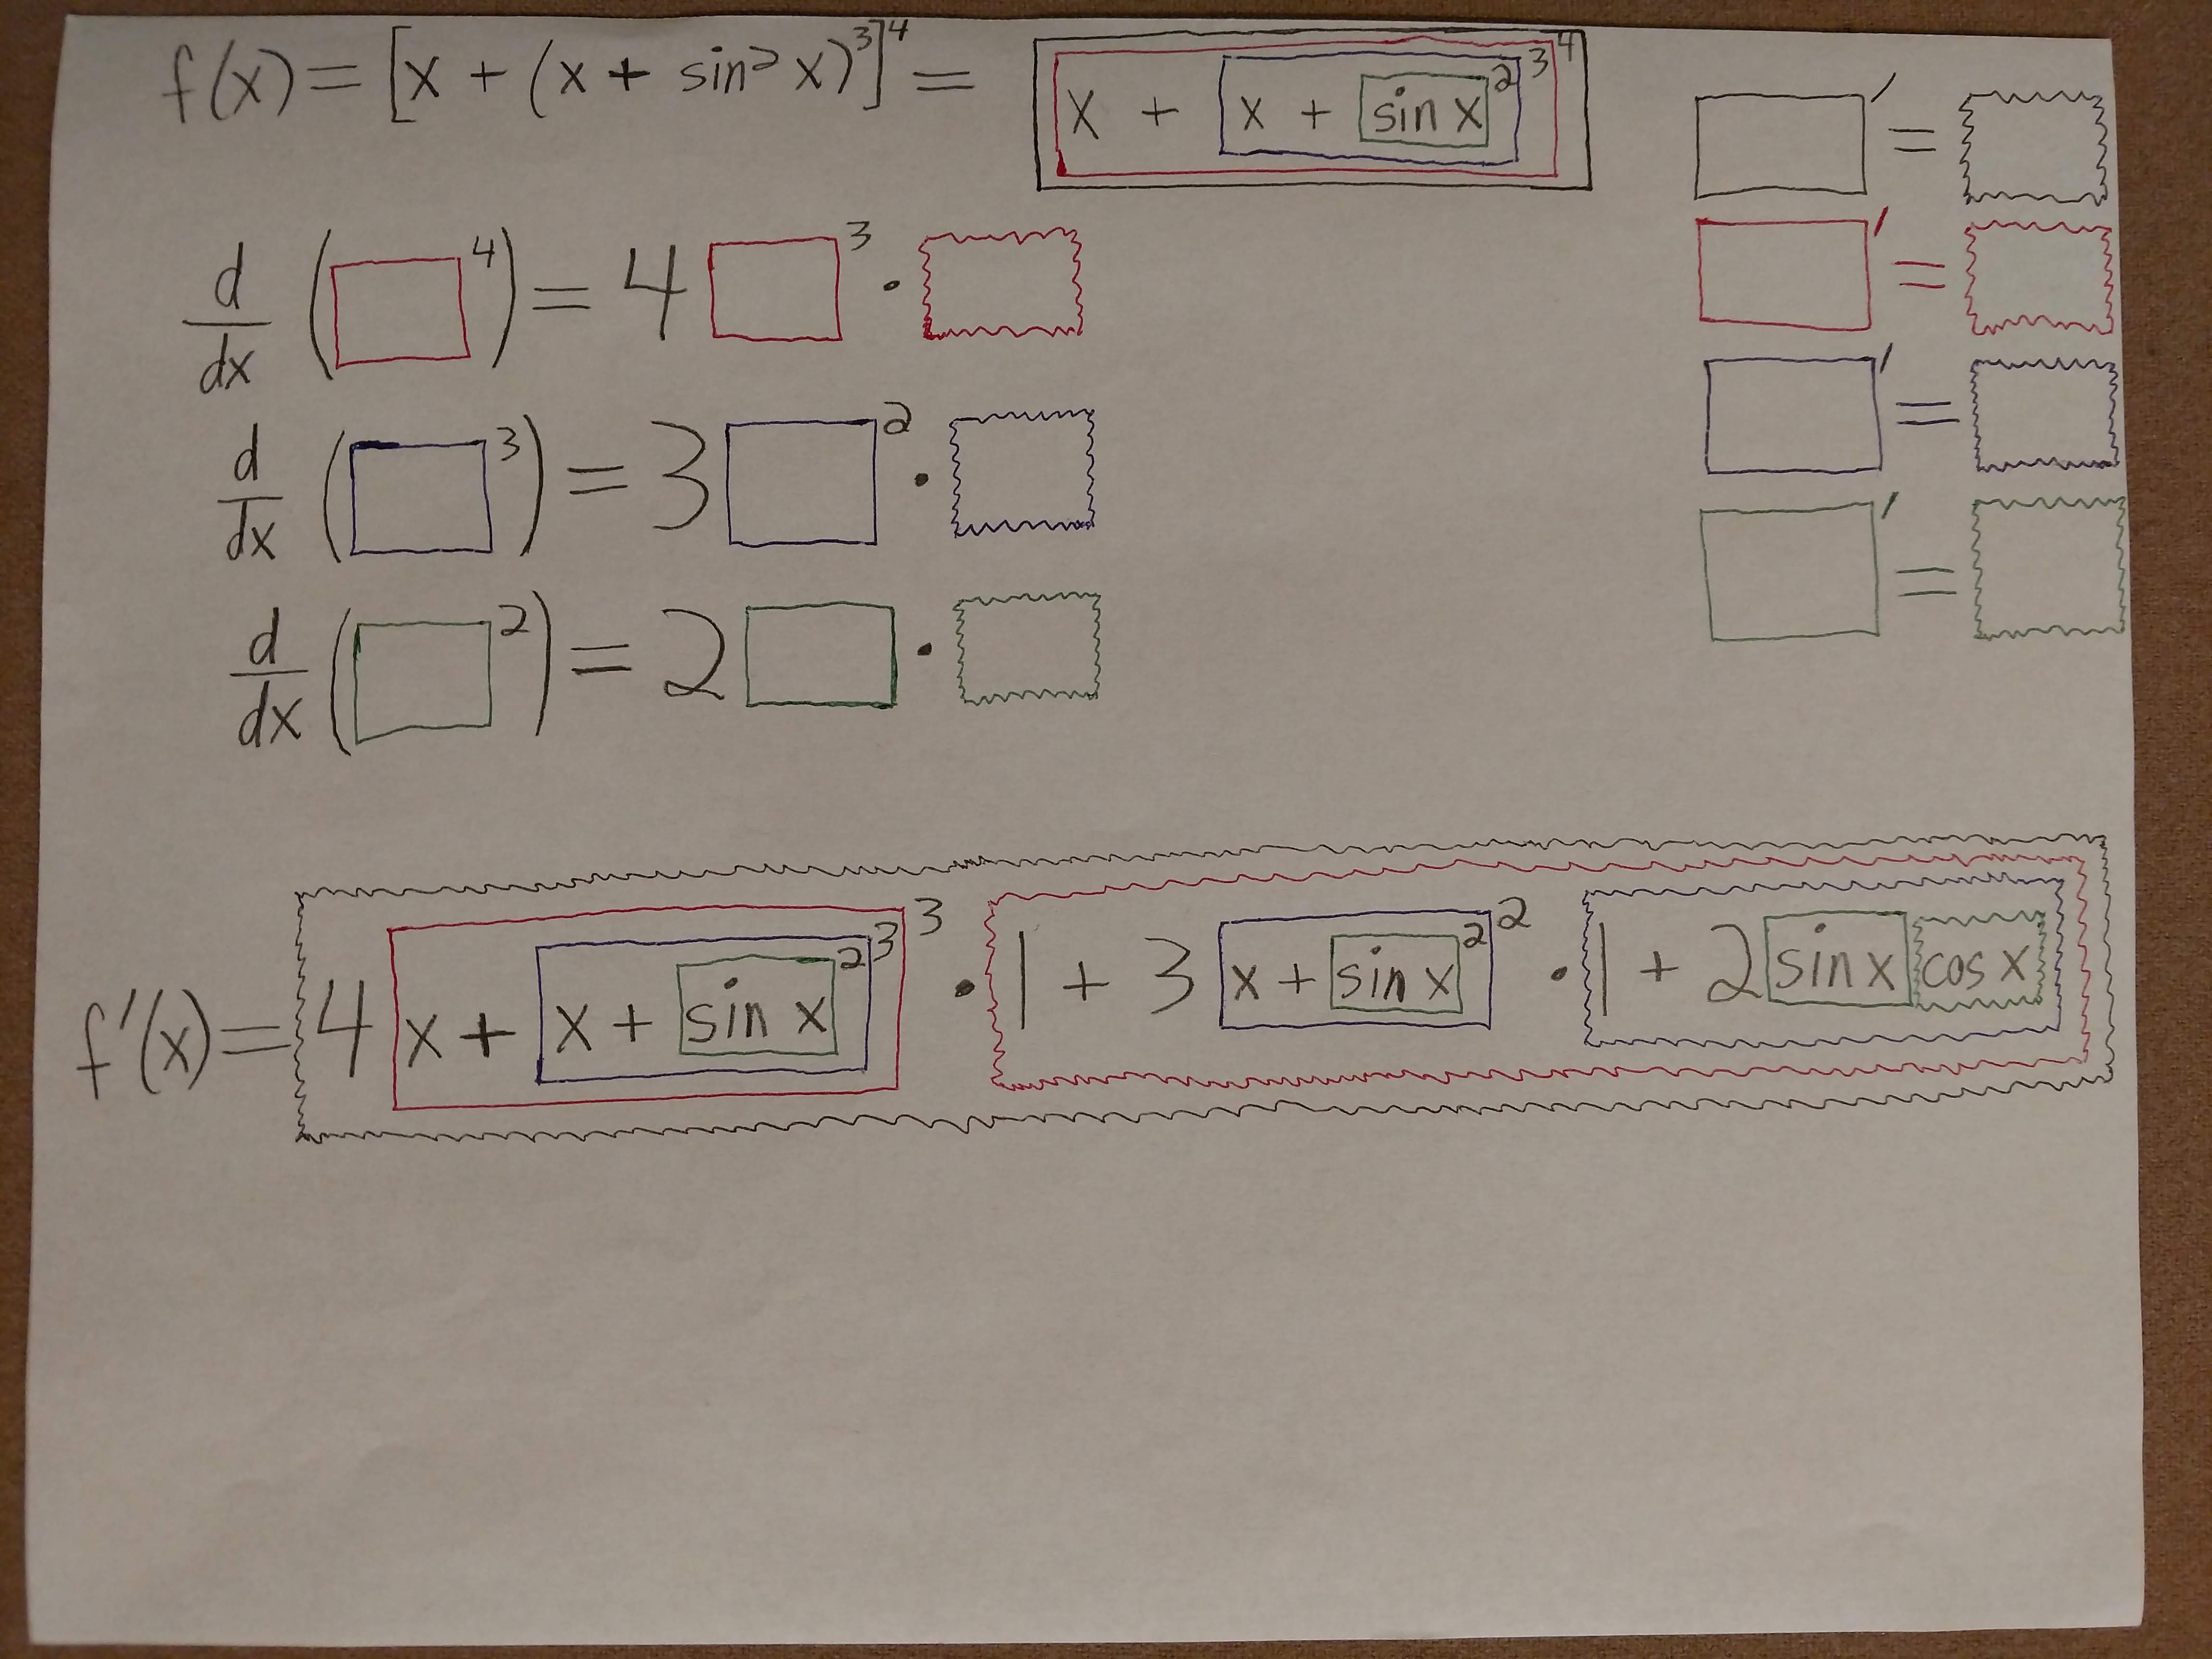 f(x) = [x + (x + sin² x)³]⁴ = x + x + sin x ² ³ ⁴
′ =
′ =
′ =
′ =
d/dx ( ⁴) = 4 ³ ·
d/dx ( ³) = 3 ² ·
d/dx ( ²) = 2 ·
f′(x) = 4 x + x + sin x ² ³ ³ · 1 + 3 x + sin x ² ² · 1 + 2 sin x cos x